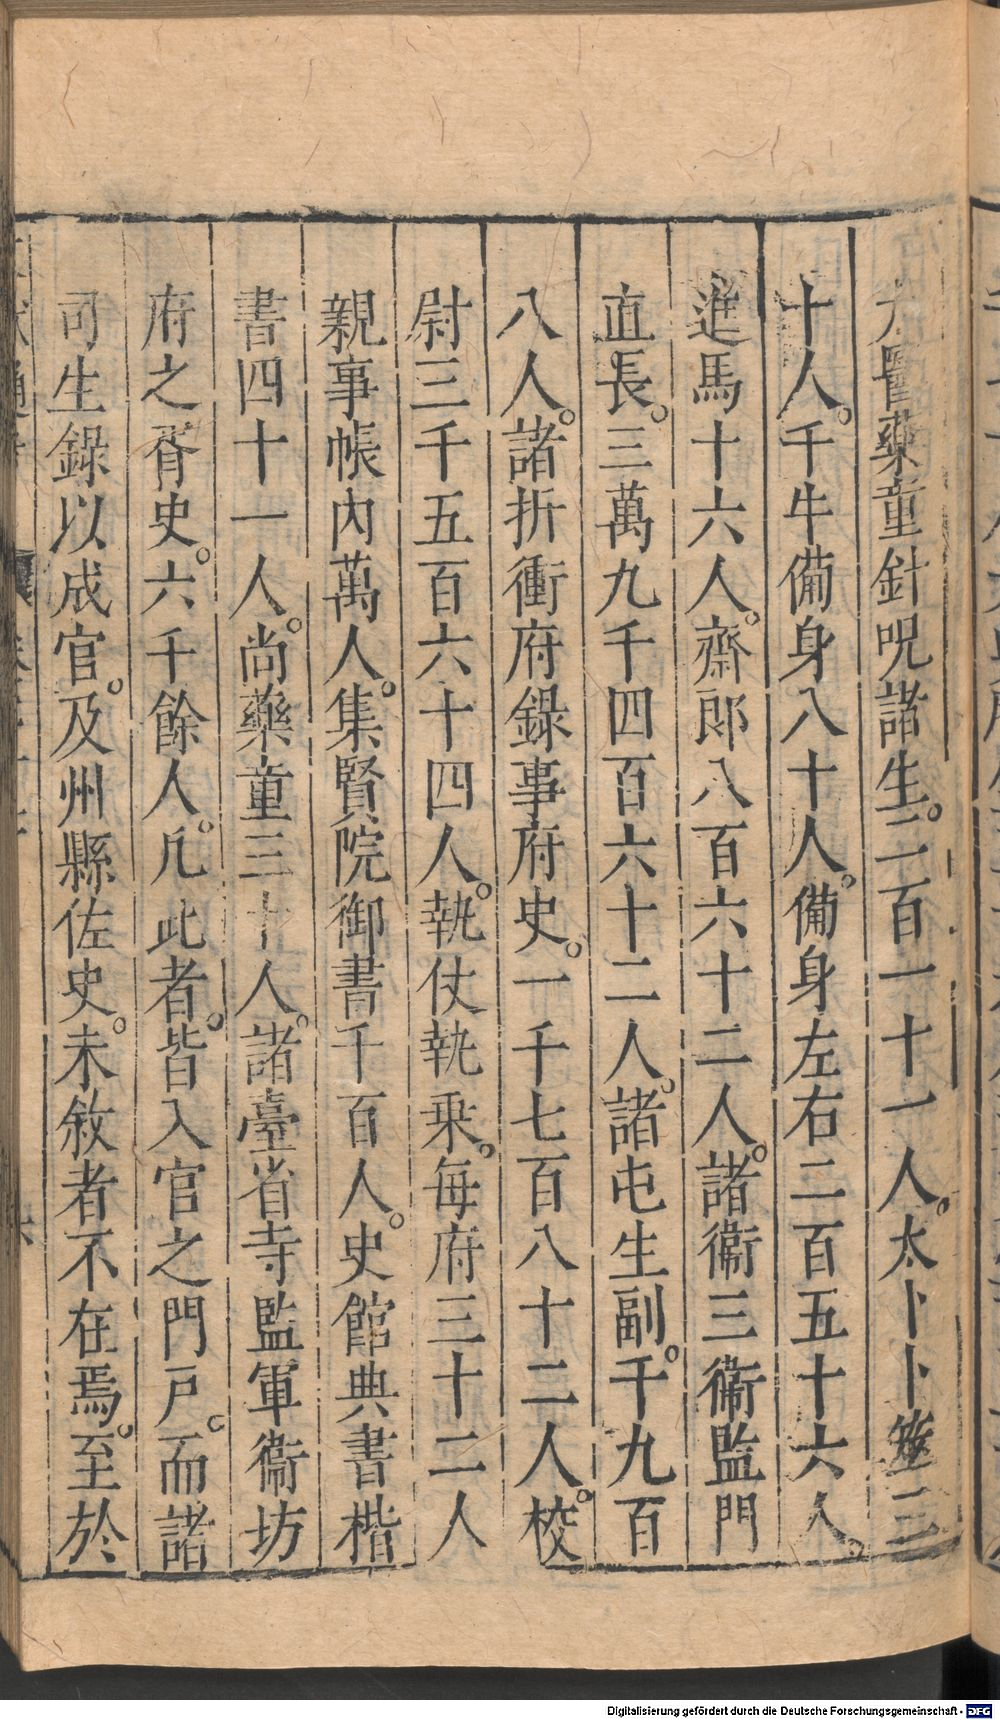 太醫藥童針呪諸生。二百一十一人。太卜卜筮三
十人。千牛備身八十人。備身左右二百五十六人。
進馬十六人。齋郎八百六十二人。諸衞三衞監門
直長。三萬九千四百六十二人。諸屯生副。千九百
八人。諸折衝府錄事府史。一千七百八十二人。校
尉三千五百六十四人。執仗執乗。每府三十二人
親事帳內萬人。集賢院御書千百人。史館典書楷
書四十一人。尚藥童三十人。諸臺省寺監軍衞坊
府之胥史。六千餘人。凡此者。皆入官之門戸。而諸
司生錄以成官。及州縣佐史。未敘者不在焉。至於
Digitalisierung gefördert durch die Deutsche Forschungsgemeinschaft - DFG